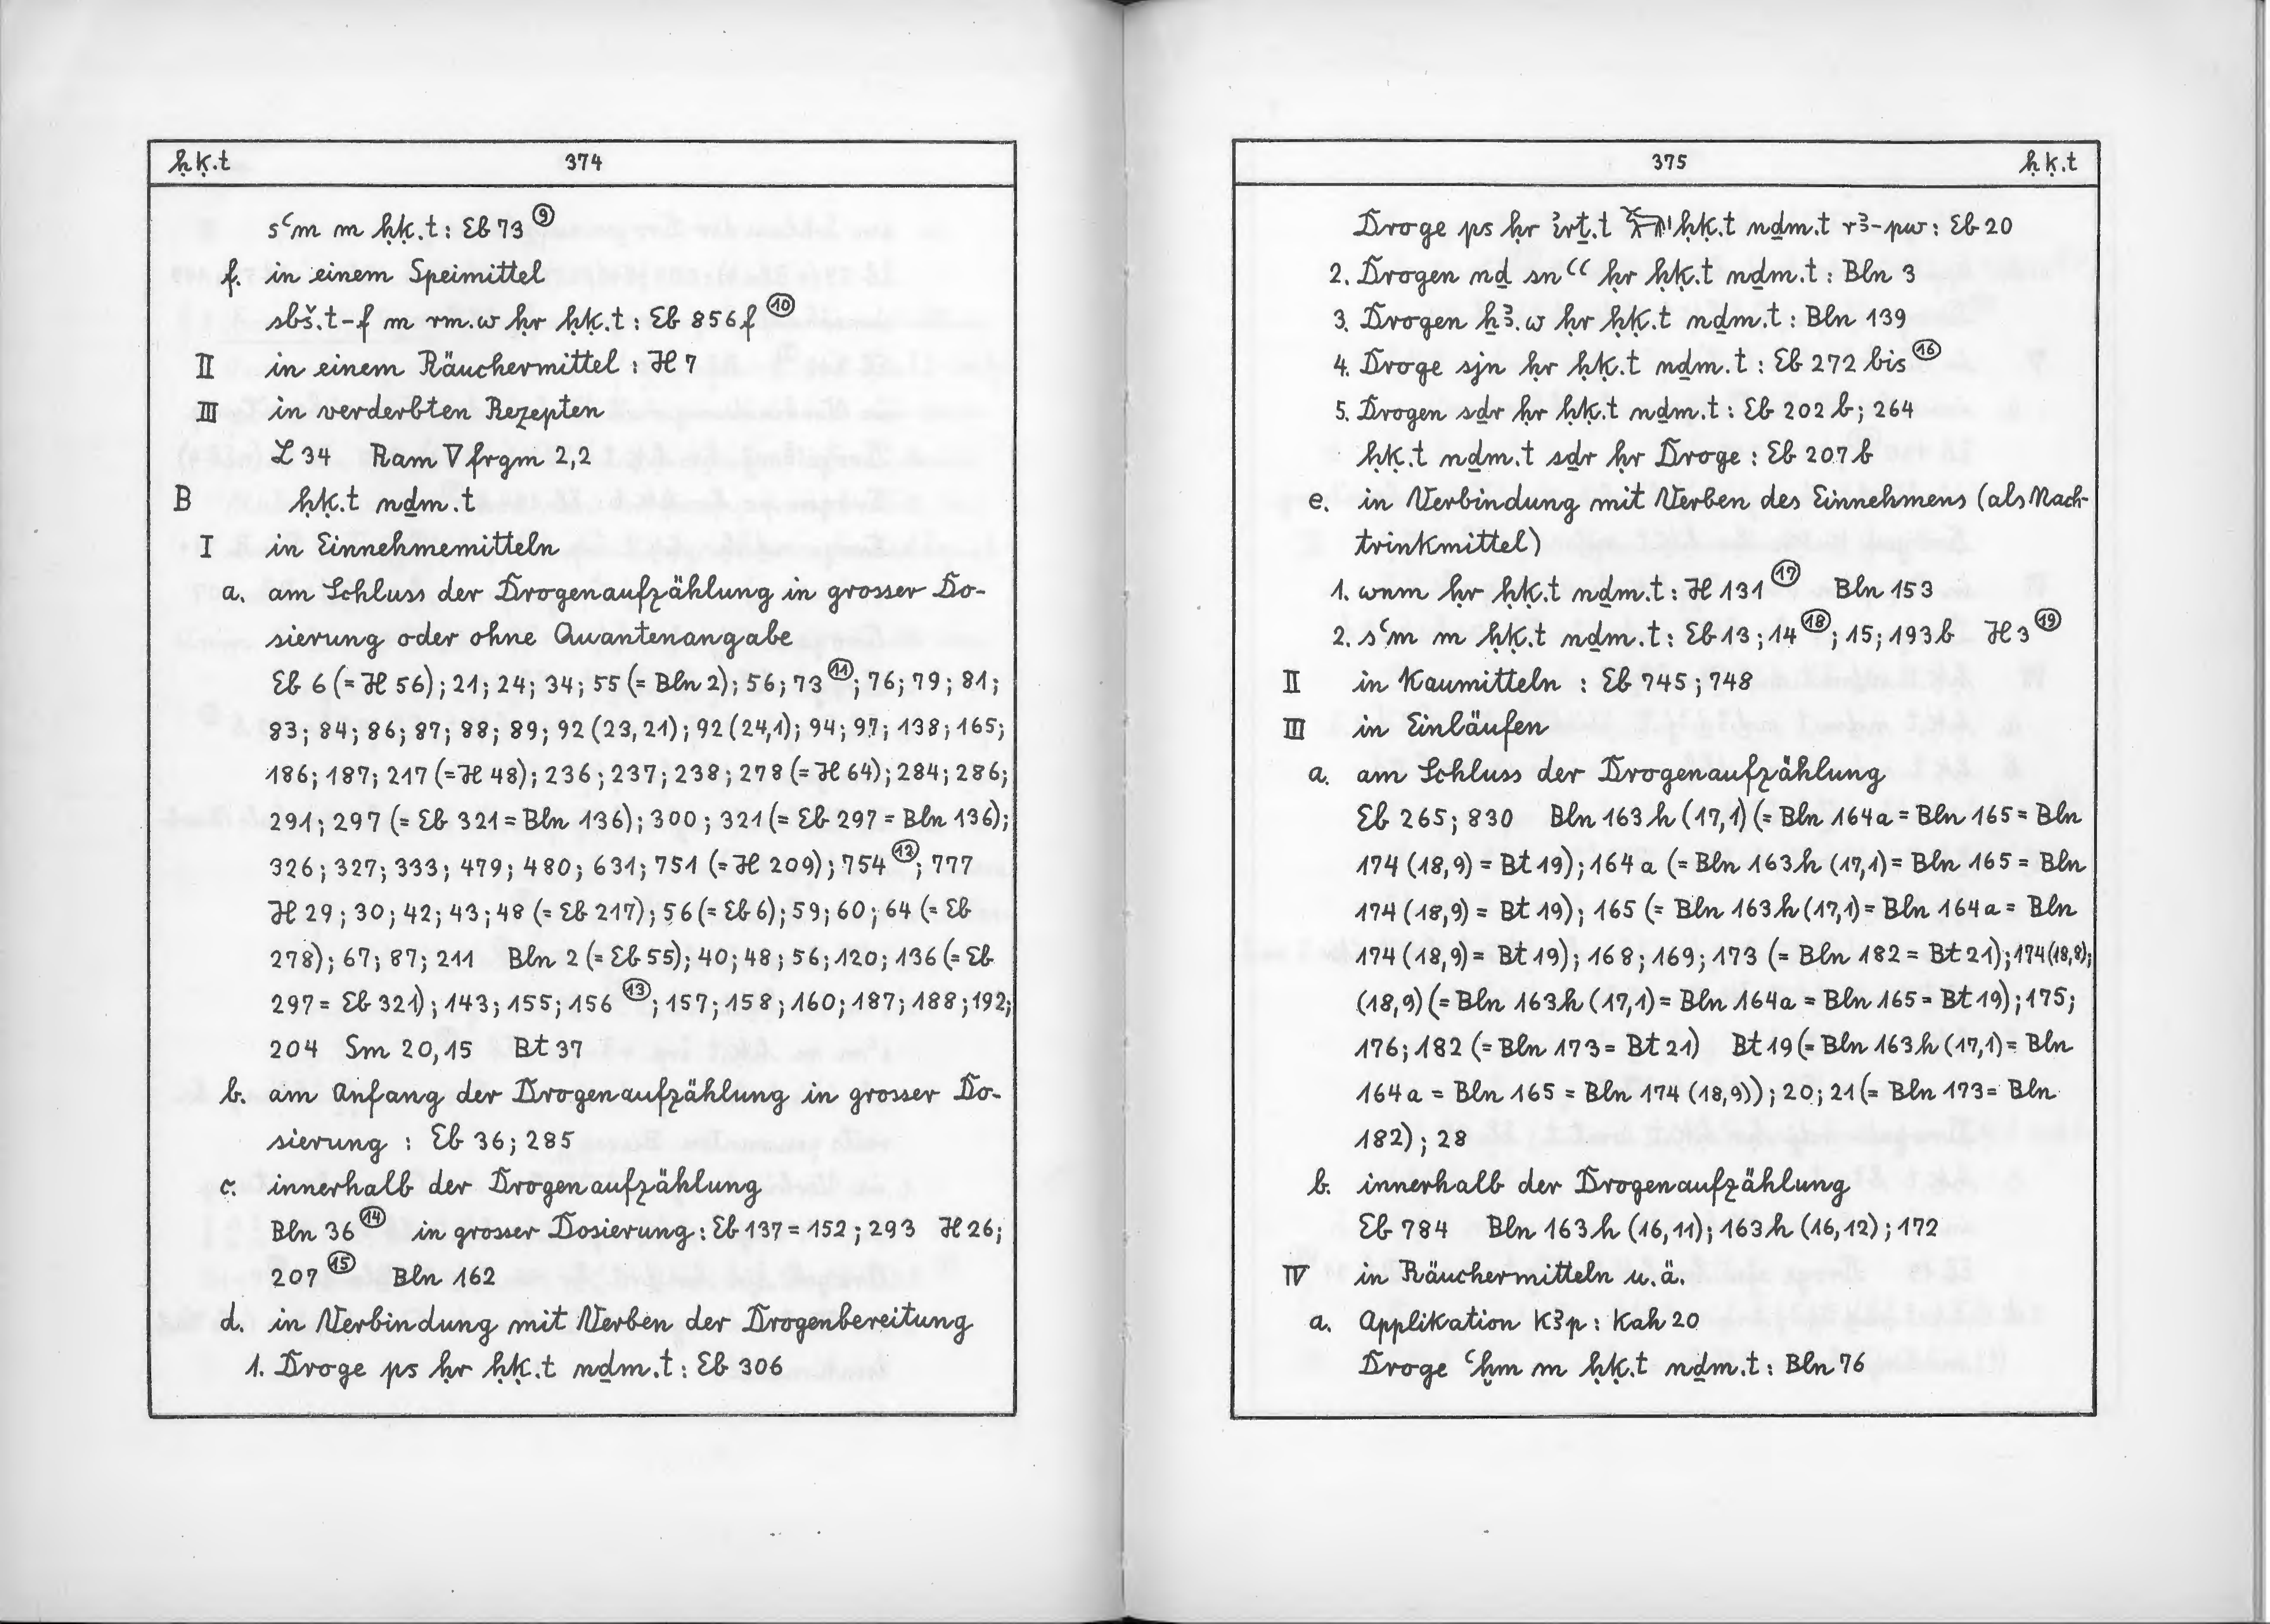 ḥḳ.t 374
sꜥm m ḥḳ.t : Eb 73 ⑨
f. in einem Speimittel
sbš.t-f m rm.w ḥr ḥḳ.t : Eb 856f ⑩
II in einem Räuchermittel : H 7
III in verderbten Rezepten
L 34 Ram V frgm 2,2
B ḥḳ.t nḏm.t
I in Einnehmemitteln
a. am Schluss der Drogenaufzählung in grosser Do-
sierung oder ohne Quantenangabe
Eb 6 (= H 56); 21; 24; 34; 55 (= Bln 2); 56; 73 ⑪; 76; 79; 81;
83; 84; 86; 87; 88; 89; 92 (23,21); 92 (24,1); 94; 97; 138; 165;
186; 187; 217 (= H 48); 236; 237; 238; 278 (= H 64); 284; 286;
291; 297 (= Eb 321 = Bln 136); 300; 321 (= Eb 297 = Bln 136);
326; 327; 333; 479; 480; 631; 751 (= H 209); 754 ⑫; 777
H 29; 30; 42; 43; 48 (= Eb 217); 56 (= Eb 6); 59; 60; 64 (= Eb
278); 67; 87; 211 Bln 2 (= Eb 55); 40; 48; 56; 120; 136 (= Eb
297 = Eb 321); 143; 155; 156 ⑬; 157; 158; 160; 187; 188; 192;
204 Sm 20,15 Bt 37
b. am Anfang der Drogenaufzählung in grosser Do-
sierung : Eb 36; 285
c. innerhalb der Drogenaufzählung
Bln 36 ⑭ in grosser Dosierung : Eb 137 = 152; 293 H 26;
207 ⑮ Bln 162
d. in Verbindung mit Verben der Drogenbereitung
1. Droge ps ḥr ḥḳ.t nḏm.t : Eb 306
375 ḥḳ.t
Droge ps ḥr ꞽrṯ.t ḥḳ.t nḏm.t rꜣ-pw : Eb 20
2. Drogen nḏ snꜥꜥ ḥr ḥḳ.t nḏm.t : Bln 3
3. Drogen ẖꜣ.w ḥr ḥḳ.t nḏm.t : Bln 139
4. Droge sjn ḥr ḥḳ.t nḏm.t : Eb 272 bis ⑯
5. Drogen sḏr ḥr ḥḳ.t nḏm.t : Eb 202 b; 264
ḥḳ.t nḏm.t sḏr ḥr Droge : Eb 207 b
e. in Verbindung mit Verben des Einnehmens (als Nach-
trinkmittel)
1. wnm ḥr ḥḳ.t nḏm.t : H 131 ⑰ Bln 153
2. sꜥm m ḥḳ.t nḏm.t : Eb 13; 14 ⑱; 15; 193 b H 3 ⑲
II in Kaumitteln : Eb 745; 748
III in Einläufen
a. am Schluss der Drogenaufzählung
Eb 265; 830 Bln 163 h (17,1) (= Bln 164 a = Bln 165 = Bln
174 (18,9) = Bt 19); 164 a (= Bln 163 h (17,1) = Bln 165 = Bln
174 (18,9) = Bt 19); 165 (= Bln 163 h (17,1) = Bln 164 a = Bln
174 (18,9) = Bt 19); 168; 169; 173 (= Bln 182 = Bt 21); 174 (18,8);
(18,9) (= Bln 163 h (17,1) = Bln 164 a = Bln 165 = Bt 19); 175;
176; 182 (= Bln 173 = Bt 21) Bt 19 (= Bln 163 h (17,1) = Bln
164 a = Bln 165 = Bln 174 (18,9)); 20; 21 (= Bln 173 = Bln
182); 28
b. innerhalb der Drogenaufzählung
Eb 784 Bln 163 h (16,11); 163 h (16,12); 172
IV in Räuchermitteln u.ä.
a. Applikation kꜣp : Kah 20
Droge ꜥẖm m ḥḳ.t nḏm.t : Bln 76